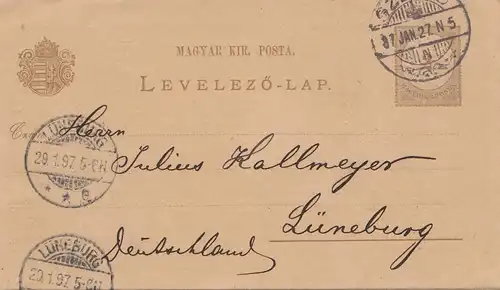 MAGYAR KIR. POSTA.
LEVELEZŐ-LAP.
97 JAN. 27. N 5
N
Herrn
Julius Kallmeyer
Lüneburg
Deutschland
LÜNEBURG
29.1.97. 5-6N
* * e
LÜNEBURG
29.1.97. 5-6N